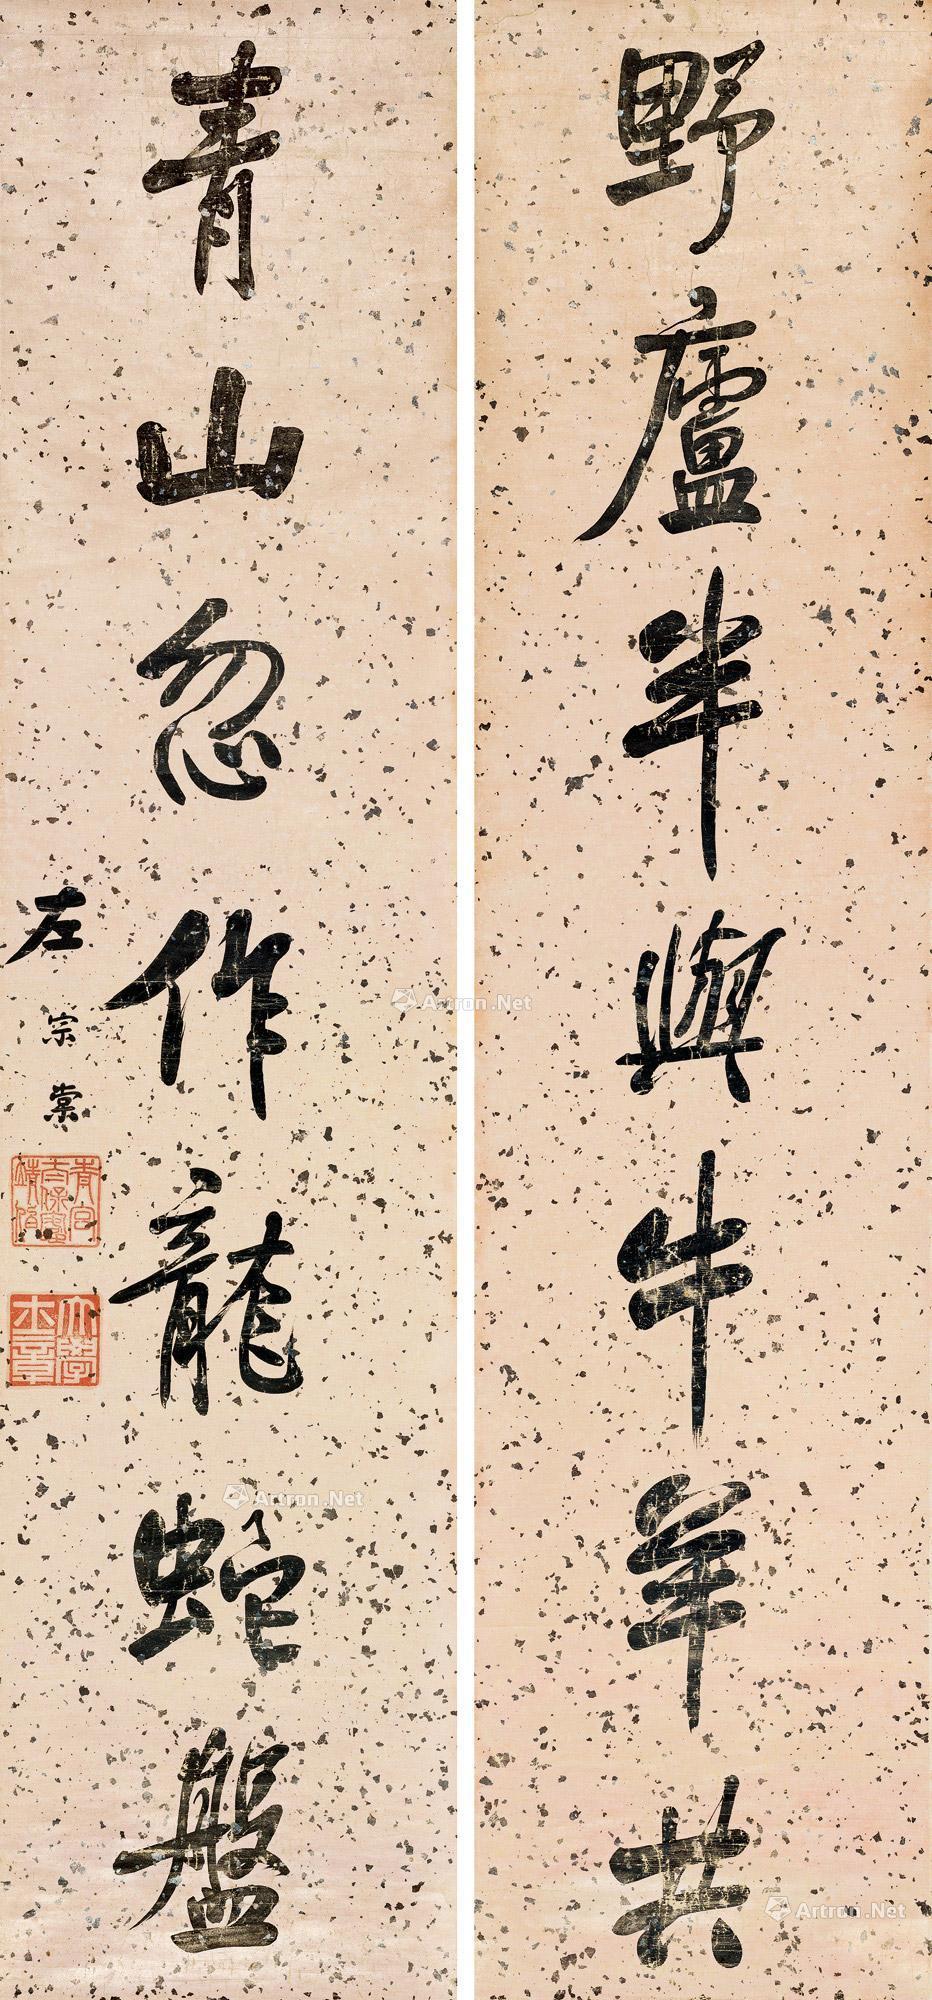 野廬半與牛羊共
青山忽作龍蛇盤
左宗棠
青宮太保恪靖侯
大學士章
Artron.Net
Artron.Net
Artron.Net